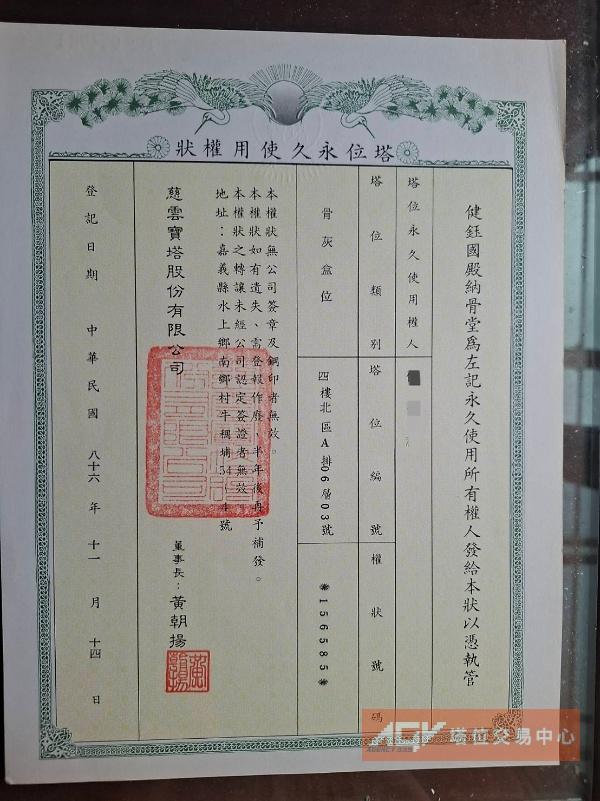 塔位永久使用權狀
健鈺國殿納骨堂為左記永久使用所有權人發給本狀以憑執管
塔位永久使用權人
塔位類別
塔位編號
權狀號碼
骨灰盒位
四樓北區A排06層03號
*1565585*
本權狀無公司簽章及鋼印者無效。
本權狀如有遺失、需登報作廢，半年後再予補發。
本權狀之轉讓未經公司認定簽證者無效
地址：嘉義縣水上鄉南鄉村牛稠埔54-4號
慈雲寶塔股份有限公司
董事長：黃朝揚
登記日期 中華民國 八十六 年 十一 月 十四 日
AGK 塔位交易中心